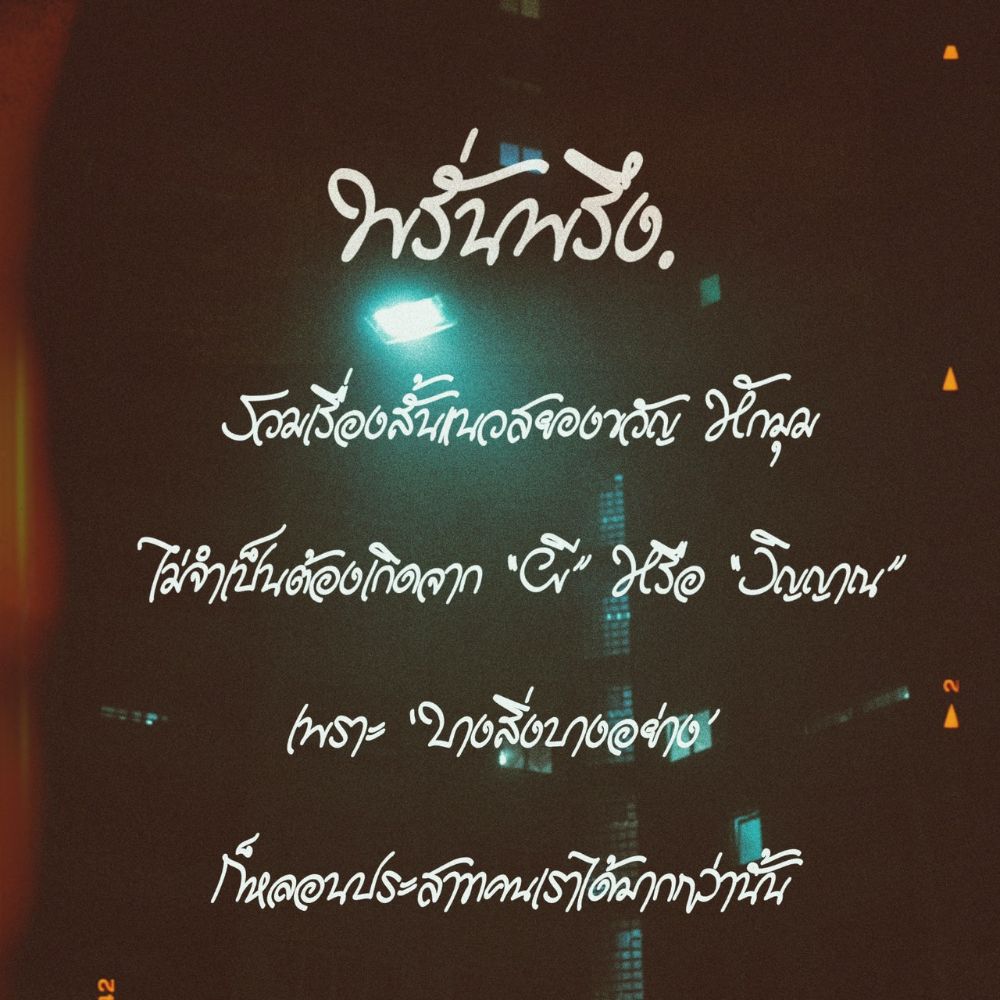 พรั่นพรึง.
รวมเรื่องสั้นแนวสยองขวัญ หักมุม
ไม่จำเป็นต้องเกิดจาก "ผี" หรือ "วิญญาณ"
เพราะ 'บางสิ่งบางอย่าง'
ก็หลอนประสาทคนเราได้มากกว่านั้น
2
42